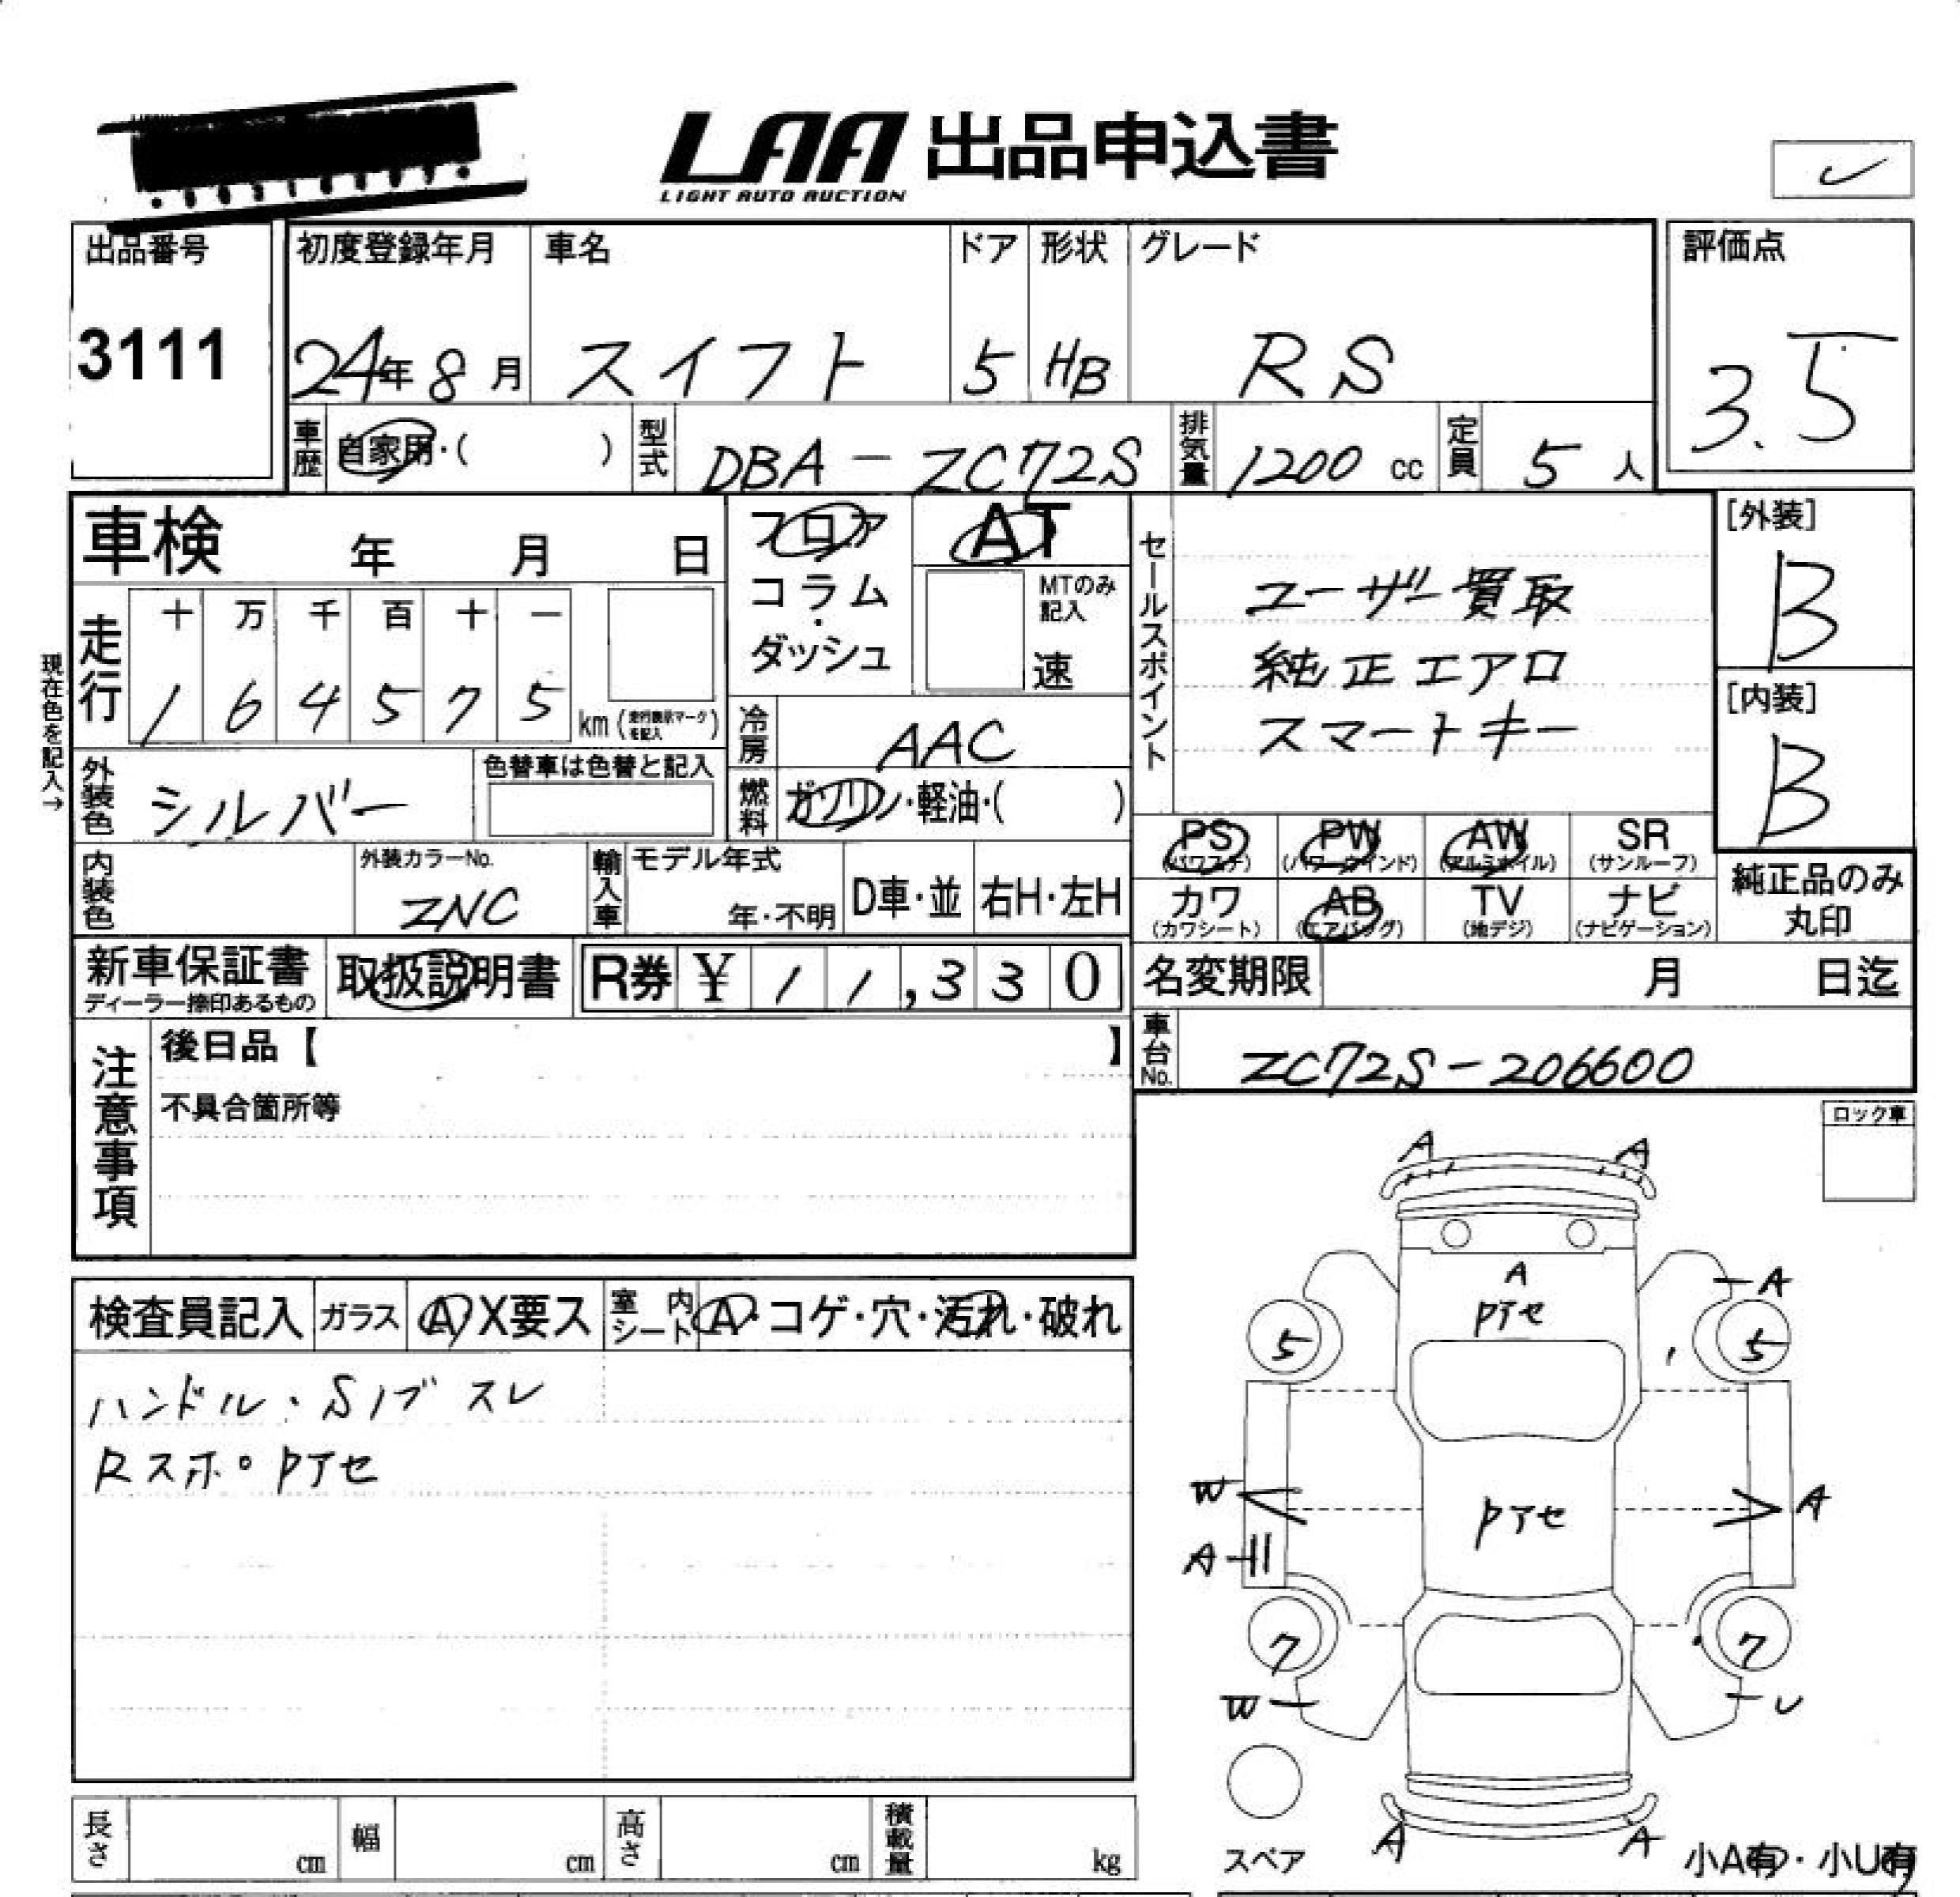 LAA 出品申込書
LIGHT AUTO AUCTION
出品番号
3111
初度登録年月 車名 ドア 形状 グレード
24年 8月 スイフト 5 HB RS
評価点
3.5
車歴 自家用・( ) 型式 DBA-ZC72S 排気量 1200 cc 定員 5 人
車検 年 月 日
フロア
コラム・
ダッシュ
AT
MTのみ
記入
速
現在色を記入→
走行
十 万 千 百 十 一
1 6 4 5 7 5 km (走行表示マークを記入)
冷房 AAC
外装色 シルバー 色替車は色替と記入
燃料 ガソリン・軽油・( )
内装色 外装カラーNo. ZNC
輸入車 モデル年式 年・不明 D車・並 右H・左H
セールスポイント
ユーザー買取
純正エアロ
スマートキー
[外装]
B
[内装]
B
PS PW AW SR
(パワステ) (パワーウインド) (アルミホイル) (サンルーフ)
カワ AB TV ナビ
(カワシート) (エアバッグ) (地デジ) (ナビゲーション)
純正品のみ
丸印
新車保証書
ディーラー捺印あるもの
取扱説明書 R券 ¥ 11,330
名変期限 月 日迄
車台No. ZC72S-206600
注意事項
後日品【 】
不具合箇所等
ロック車
検査員記入 ガラス A X要ス 室内シート A・コゲ・穴・汚れ・破れ
ハンドル・Sノブ スレ
Rスポ。Pアセ
A A
A
Pアセ
A
5 5
W Pアセ A
A
7 7
W U
A A
スペア
小A有・小U有
長さ cm 幅 cm 高さ cm 積載量 kg